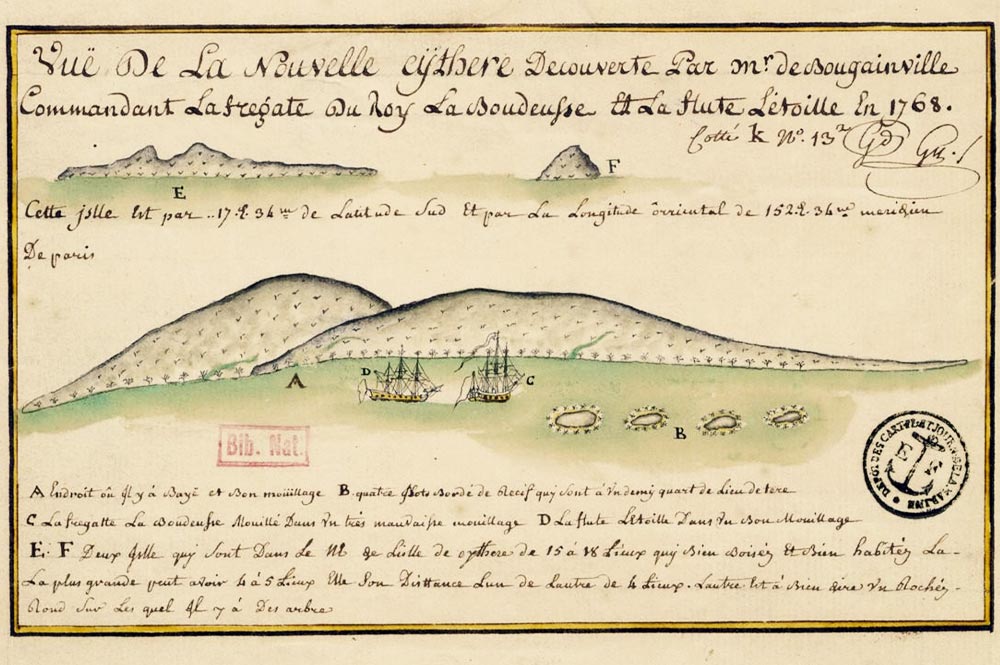 Vuë De La Nouvelle cÿthere Decouverte Par mr. de Bougainville
Commandant La fregate Du Roy La Boudeusse Et La flute L'étoille En 1768.
Cotté k No. 13
E
F
Cette jslle Est par ..17.d. 34 m de Latitude Sud Et par La Longitude òrriental de 152.d. 34 m meridien
De paris
A
D
C
B
Bib. Nat.
DEPÔT DES CARTES ET JOURN. DE LA MARINE
A Endroit oû jl y à Bayë et Bon moüillage B. quatre jlots Bordé de Recif quy sont à Un demy quart de Lieu de tere
C La fregatte La Boudeusse Moüillé Dans Un trés mauvaisse moüillage D La flute L'Etoille Dans Un Bon Moüillage
E. F Deux jslle quy sont Dans Le de Lislle de cythere de 15 à 18 Lieux quy Bien Boiséz Et Bien habitéz La-
La plus grande peut avoir 4 à 5 Lieux Elle Son Disttance Lun de Lautre de 4 Lieux. Lautre Est à Bien dire Un Rochéz-
Rond Sur Les quel jl y à Des arbre